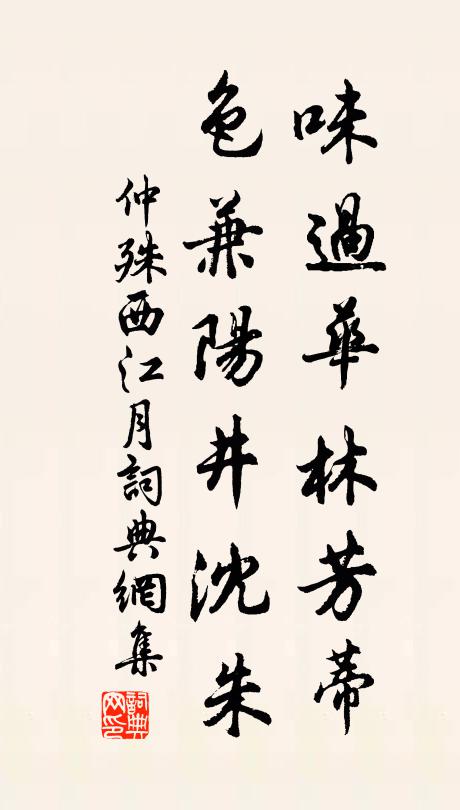 味過華林芳蒂
色兼陽井沈朱
仲殊西江月詞典網集
詞典網印